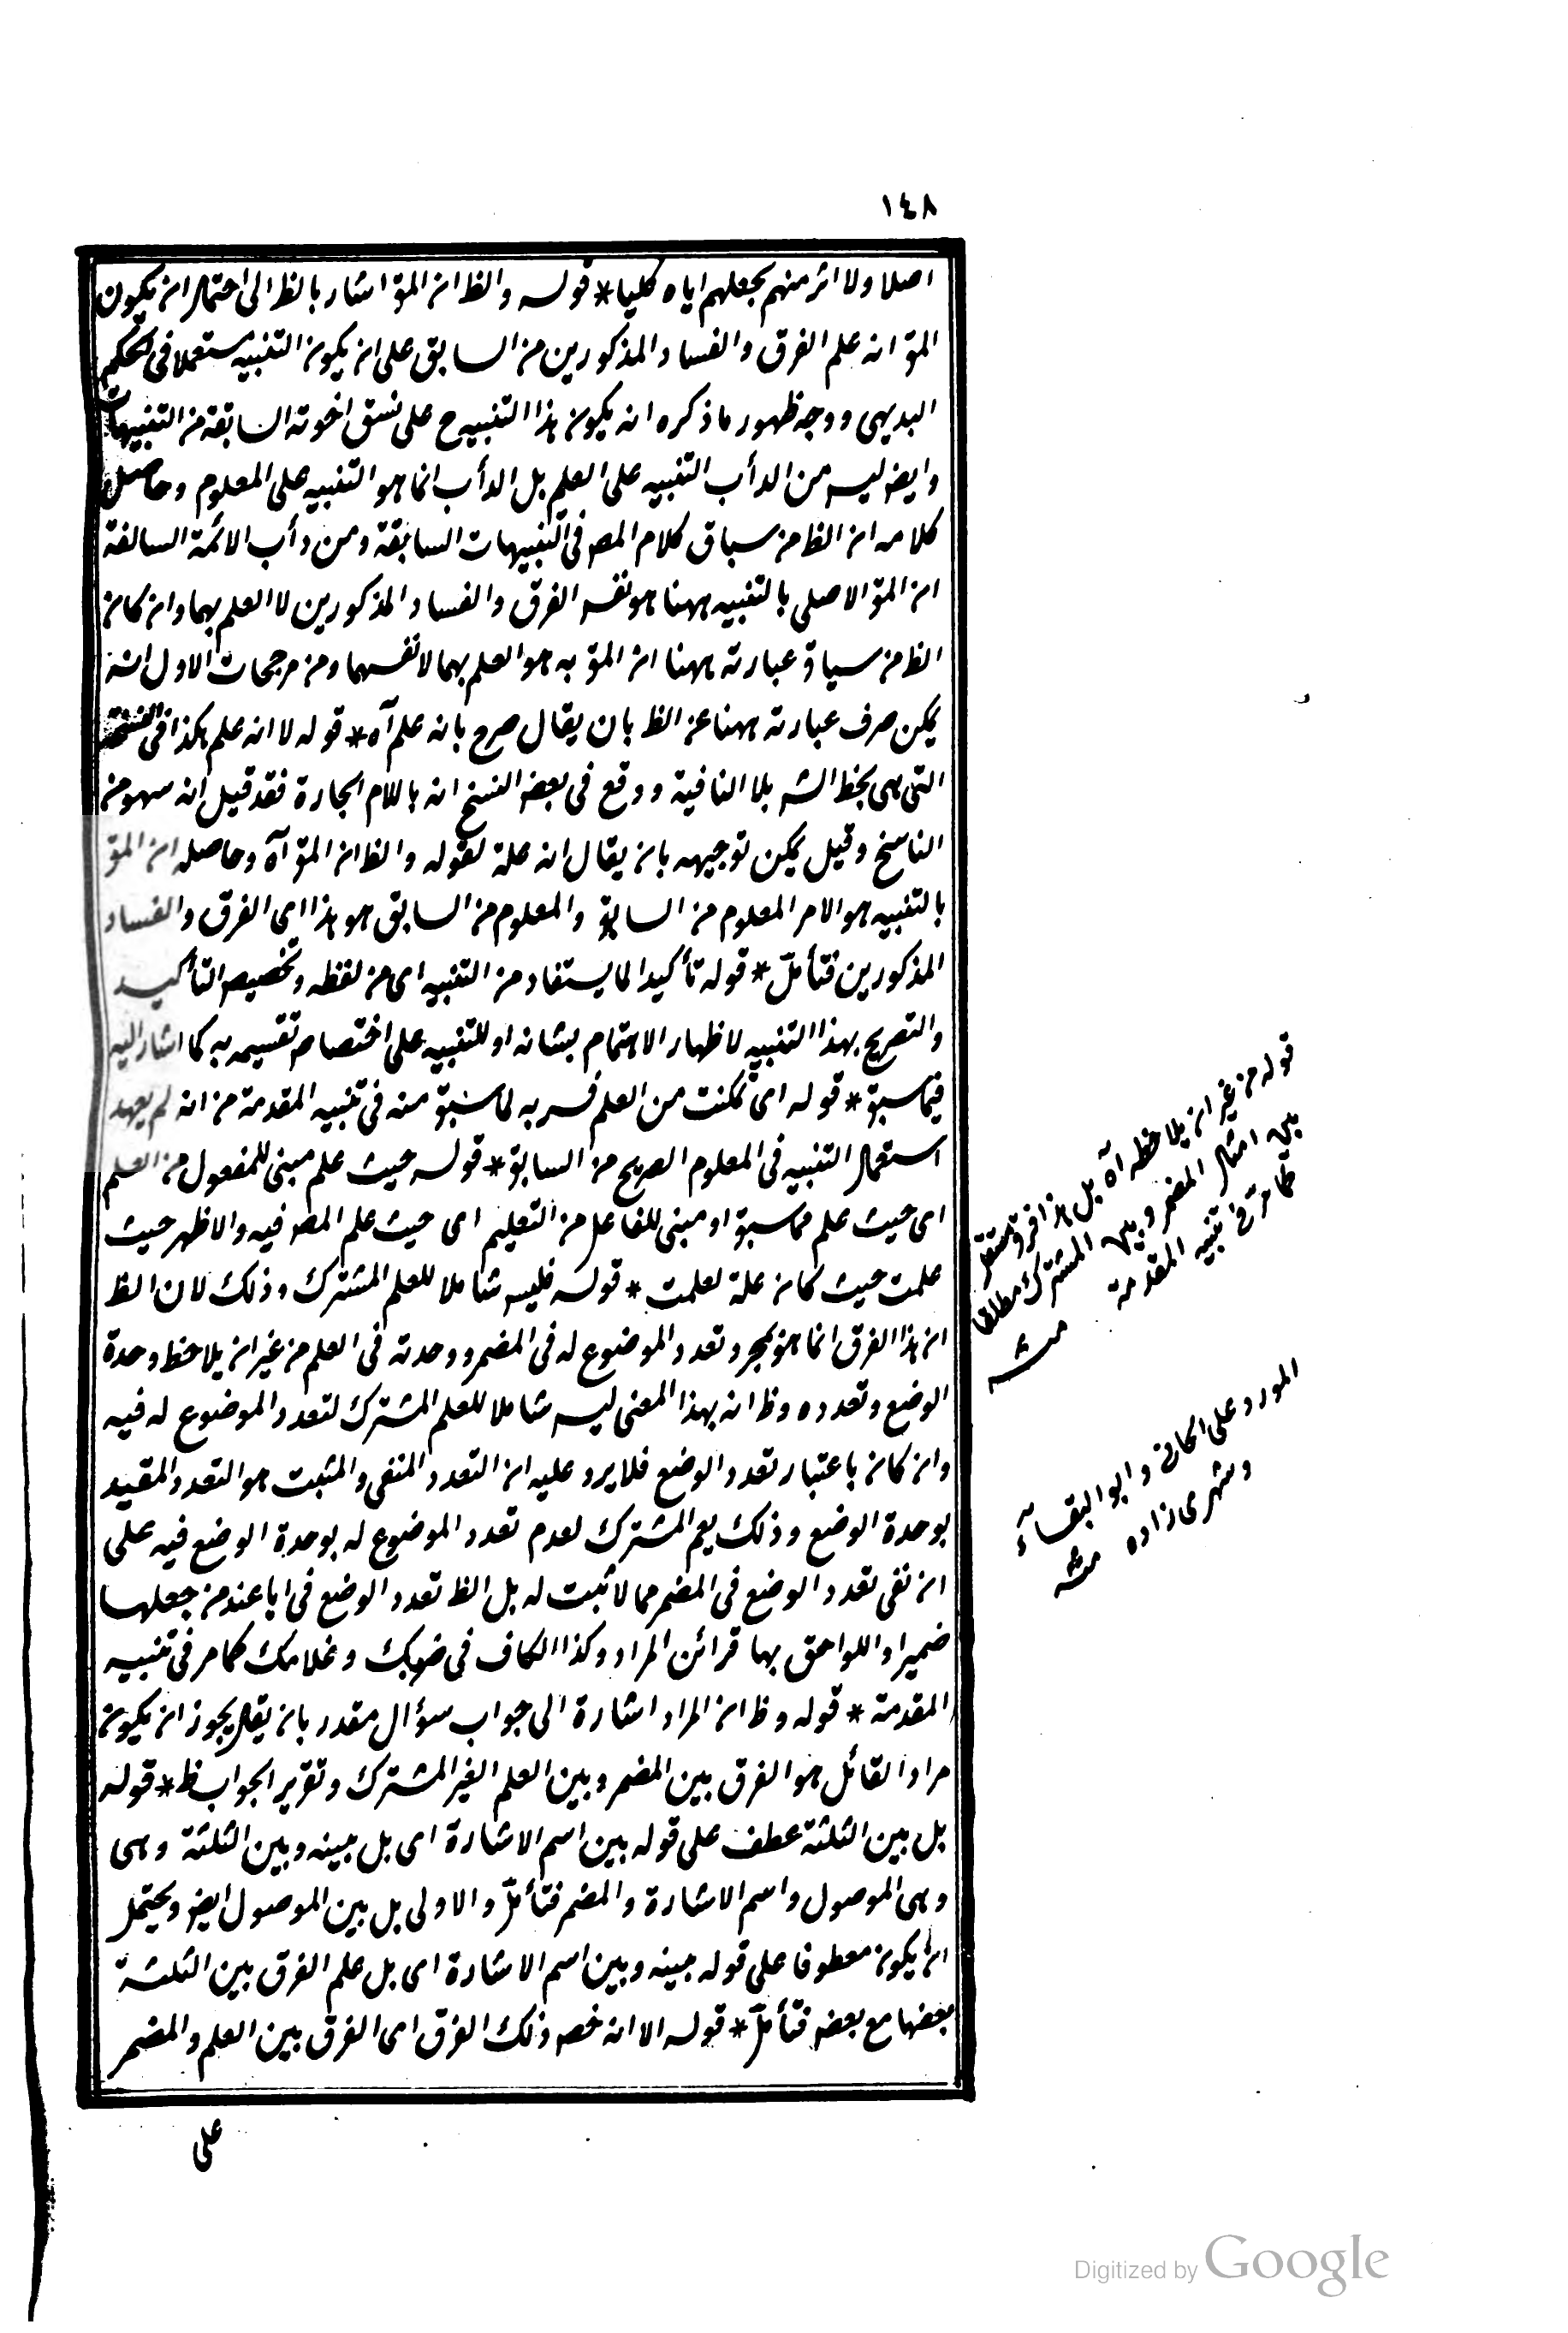 ١٤٨
اصلا ولا اثر منهم بجعلهم اياه كليا * قوله والظ ان المق اشار بالظ الى احتمال ان يكون
المق انه علم الفرق والفساد المذكورين من السابق على ان يكون التنبيه مستعملا فى الحكم
البديهى ووجه ظهور ما ذكره انه يكون هذا التنبيه ح على نسق اخوته السابقة من التنبيهات
وايض ليس من الدأب التنبيه على العلم بل الدأب انما هو التنبيه على المعلوم وحاصل
كلامه ان الظ من سباق كلام المص فى التنبيهات السابقة ومن دأب الائمة السالفة
ان المق الاصلى بالتنبيه ههنا هو نفس الفرق والفساد المذكورين لا العلم بهما وان كان
الظ من سياق عبارته ههنا ان المق به هو العلم بهما لا نفسهما ومن مرجحات الاول انه
يمكن صرف عبارته ههنا عن الظ بان يقال صرح بانه علم آه * قوله لا انه علم هكذا فى النسخة
التى هى بخط الش بلا النافية ووقع فى بعض النسخ انه باللام الجارة فقد قيل انه سهو من
الناسخ وقيل يمكن توجيهه بان يقال انه علة لقوله والظ ان المق آه وحاصله ان المق
بالتنبيه هو الامر المعلوم من السابق والمعلوم من السابق هو هذا اى الفرق والفساد
المذكورين فتأمل * قوله تأكيدا لما يستفاد من التنبيه اى من لفظه وتخصيص التأكيد
والتصريح بهذا التنبيه لاظهار الاهتمام بشانه او للتنبيه على اختصاص تقسيمه به كما اشار اليه
فيما سبق * قوله اى تمكنت من العلم فسر به لما سبق منه فى تنبيه المقدمة من انه لم يعهد
استعمال التنبيه فى المعلوم الصريح من السابق * قوله حيث علم مبنى للمفعول من العلم
اى حيث علم مما سبق او مبنى للفاعل من التعليم اى حيث علم المص فيه والاظهر حيث
علمت حيث كان علة لعلمت * قوله فليس شاملا للعلم المشترك وذلك لان الظ
ان هذا الفرق انما هو بمجرد تعدد الموضوع له فى المضمر ووحدته فى العلم من غير ان يلاحظ وحدة
الوضع وتعدده وظ انه بهذا المعنى ليس شاملا للعلم المشترك لتعدد الموضوع له فيه
وان كان باعتبار تعدد الوضع فلا يرد عليه ان التعدد المنفى والمثبت هو التعدد المقيد
بوحدة الوضع وذلك يعم المشترك لعدم تعدد الموضوع له بوحدة الوضع فيه على
ان نفى تعدد الوضع فى المضمر مما لا ثبت له بل الظ تعدد الوضع فى ايا عند من جعلها
ضميرا واللواحق بها قرائن المراد وكذا الكاف فى ضربك وغلامك كما مر فى تنبيه
المقدمة * قوله وظ ان المراد اشارة الى جواب سؤال مقدر بان يقال يجوز ان يكون
مراد القائل هو الفرق بين المضمر وبين العلم الغير المشترك وتقرير الجواب ظ * قوله
بل بين الثلثة عطف على قوله بين اسم الاشارة اى بل بينه وبين الثلثة وهى
وهى الموصول واسم الاشارة والمضمر فتأمل والاولى بل بين الموصول ايض ويحتمل
ان يكون معطوفا على قوله بينه وبين اسم الاشارة اى بل علم الفرق بين الثلثة
بعضها مع بعض فتأمل * قوله الا انه خص ذلك الفرق اى الفرق بين العلم والمضمر
على
قوله من غير ان يلاحظه آه بل هذا فرق مستقل
بين امثال المضمر وبين المشترك مطلقا
كما مر فى تنبيه المقدمة
منه
المورد على وابو البقاء
وشهرى زاده منه
Digitized by Google